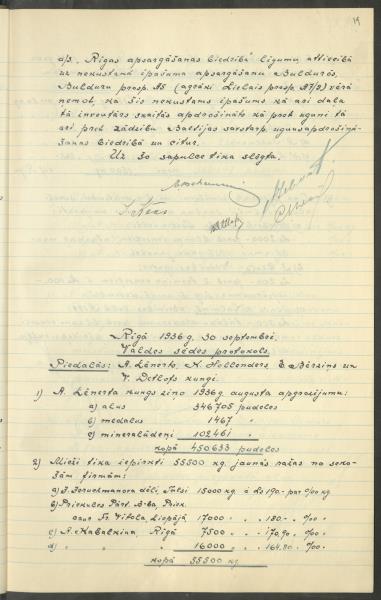 19
a/s. "Rīgas apsargāšanas biedrība" līgumu attiecībā
uz nekustamā īpašuma apsargāšanu Bulduros,
Bulduru prosp. 45 (agrāki Lielais prosp. 47/2) vērā
ņemot, ka šis nekustams īpašums kā arī daļa
tā inventārs skaitās apdrošināts kā pret uguni tā
arī pret zādzību Baltijas savstarp. ugunsapdrošinā-
šanas biedrībā un citur.
Uz ko sapulce tika slēgta.
Rīgā 1936 g. 30 septembrī.
Valdes sēdes protokols.
Piedalās: A. Lēnerts, N. Hollenders, E. Bērziņš un
V. Detlofs kungi.
1) A. Lēnerta kungs ziņo 1936 g. augusta apgrozījumu:
a) alus 346705 pudeles
b) medalus 1467 "
c) minerālūdeņi 102461 "
kopā 450633 pudeles
2) Mieži tika iepirkti 55500 kg. jaunās ražas no seko-
šām firmām:
a) J. Feruchmanova dēli, Talsi 15000 kg. à Ls 190.- par %00 kg
b) Priekules Pārt. B-ba, Priek.
caur Fr. Vītola, Liepājā 17000 " " 180.- " %00
c) A. Kabalkina, Rīgā 7500 " " 170,90 " %00
d) " " " 16000 " " 164.80 " %00
kopā 55500 kg.